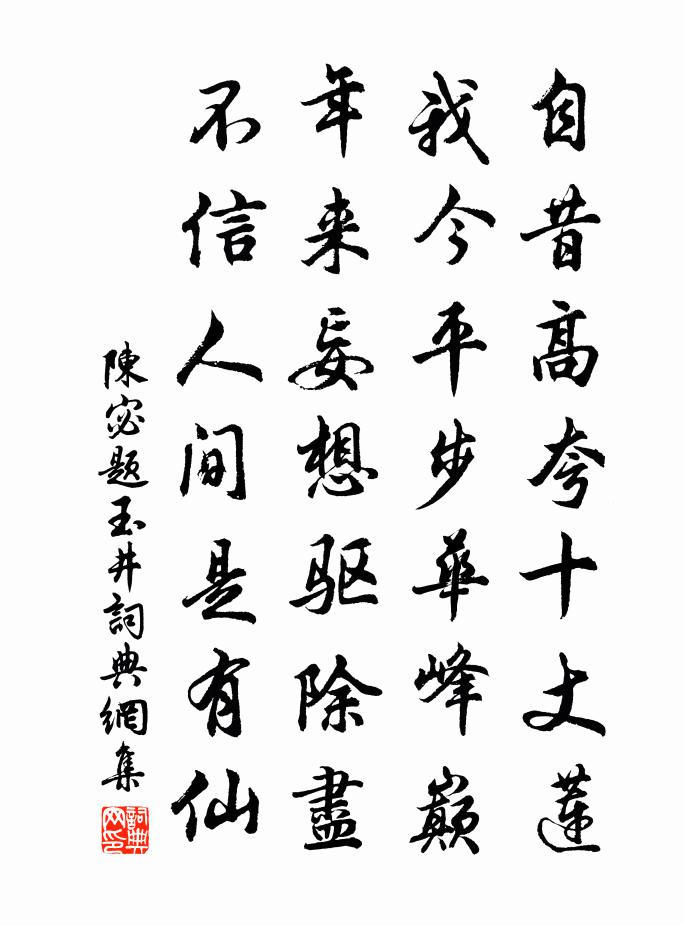 自昔高夸十丈蓮
我今平步華峰巔
年来妄想驱除盡
不信人间是有仙
陳宓题玉井詞典網集
詞典网印